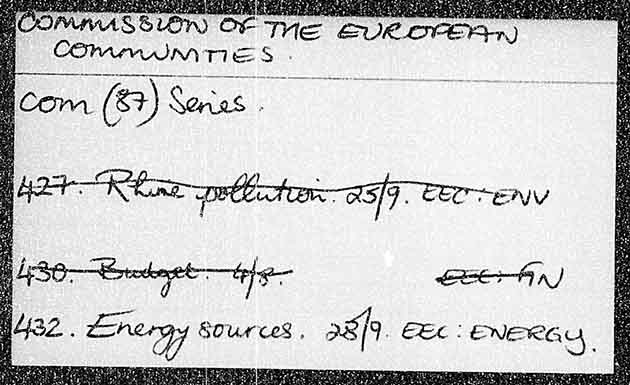 COMMISSION OF THE EUROPEAN
COMMUNITIES.
COM (87) Series.
427. Rhine pollution. 25/9. EEC: ENV
430. Budget. 4/8. EEC: FIN
432. Energy sources. 28/9. EEC: ENERGY.